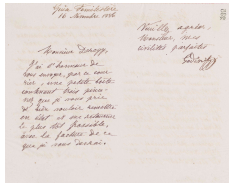 Guise Familistère
16 Novembre 1886
Monsieur Deroppy,
J'ai l'honneur de
vous envoyer, par ce cour
rier, une petite boîte
contenant trois pinces
nez que je vous prie
de bien vouloir remettre
en état et me retourner
le plus tôt possible,
avec la facture de ce
que je vous devrai.
Veuillez agréer,
Monsieur, mes
civilités parfaites
Godin